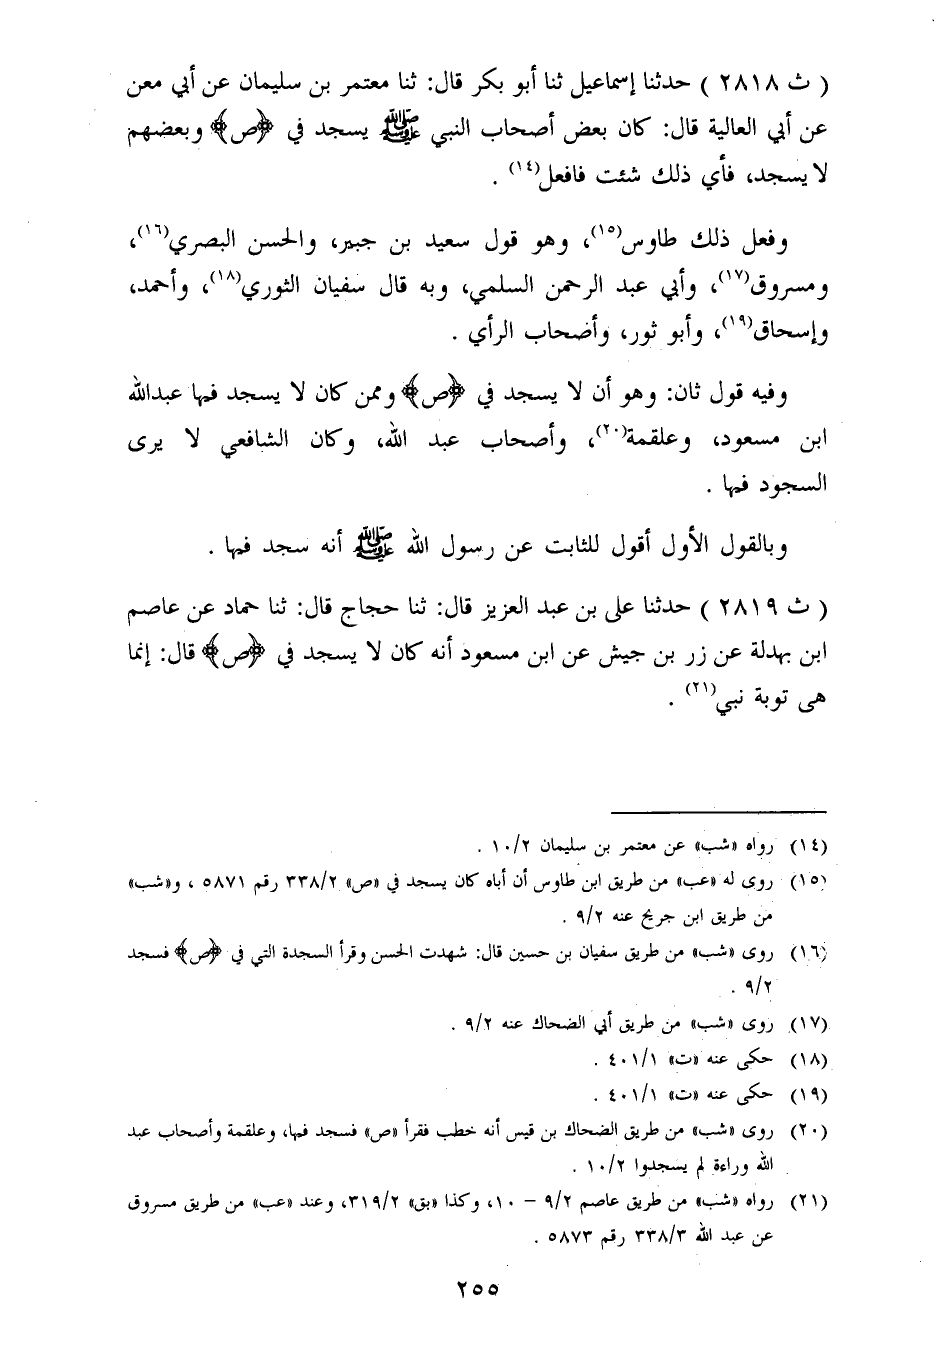 ( ث ٢٨١٨ ) حدثنا إسماعيل ثنا أبو بكر قال: ثنا معتمر بن سليمان عن أبي معن
عن أبي العالية قال: كان بعض أصحاب النبي ﷺ يسجد في ﴿ص﴾ وبعضهم
لا يسجد، فأي ذلك شئت فافعل(١٤) .
وفعل ذلك طاوس(١٥)، وهو قول سعيد بن جبير، والحسن البصري(١٦)،
ومسروق(١٧)، وأبي عبد الرحمن السلمي، وبه قال سفيان الثوري(١٨)، وأحمد،
وإسحاق(١٩)، وأبو ثور، وأضحاب الرأي .
وفيه قول ثان: وهو أن لا يسجد في ﴿ص﴾ وممن كان لا يسجد فيها عبدالله
ابن مسعود، وعلقمة(٢٠)، وأصحاب عبد الله، وكان الشافعي لا يرى
السجود فيها .
وبالقول الأول أقول للثابت عن رسول الله ﷺ أنه سجد فيها .
( ث ٢٨١٩ ) حدثنا على بن عبد العزيز قال: ثنا حجاج قال: ثنا حماد عن عاصم
ابن بهدلة عن زر بن جيش عن ابن مسعود أنه كان لا يسجد في ﴿ص﴾ قال: إنما
هى توبة نبي(٢١) .
(١٤) رواه «شب» عن معتمر بن سليمان ١٠/٢ .
(١٥) روى له «عب» من طريق ابن طاوس أن أباه كان يسجد في «ص» ٣٣٨/٢ رقم ٥٨٧١ ، و«شب»
من طريق ابن جريج عنه ٩/٢ .
(١٦) روى «شب» من طريق سفيان بن حسين قال: شهدت الحسن وقرأ السجدة التي في ﴿ص﴾ فسجد
٩/٢ .
(١٧) روى «شب» من طريق أبي الضحاك عنه ٩/٢ .
(١٨) حكى عنه «ت» ٤٠١/١ .
(١٩) حكى عنه «ت» ٤٠١/١ .
(٢٠) روى «شب» من طريق الضحاك بن قيس أنه خطب فقرأ «ص» فسجد فيها، وعلقمة وأصحاب عبد
الله وراءة لم يسجدوا ١٠/٢ .
(٢١) رواه «شب» من طريق عاصم ٩/٢ - ١٠، وكذا «بق» ٣١٩/٢، وعند «عب» من طريق مسروق
عن عبد الله ٣٣٨/٣ رقم ٥٨٧٣ .
٢٥٥